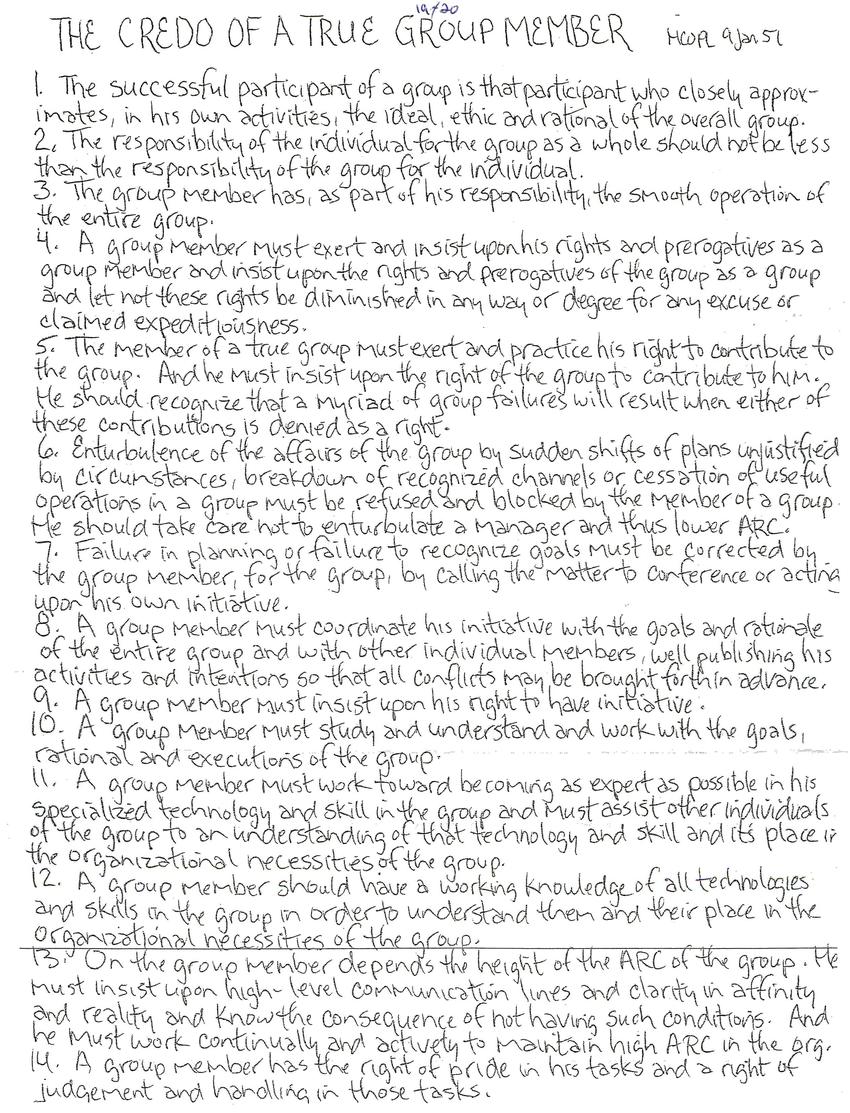 19/20
THE CREDO OF A TRUE GROUP MEMBER HCOPL 9 Jan 51
1. The successful participant of a group is that participant who closely approx-
imates, in his own activities, the ideal, ethic and rational of the overall group.
2. The responsibility of the individual for the group as a whole should not be less
than the responsibility of the group for the individual.
3. The group member has, as part of his responsibility, the smooth operation of
the entire group.
4. A group member must exert and insist upon his rights and prerogatives as a
group member and insist upon the rights and prerogatives of the group as a group
and let not these rights be diminished in any way or degree for any excuse or
claimed expeditiousness.
5. The member of a true group must exert and practice his right to contribute to
the group. And he must insist upon the right of the group to contribute to him.
He should recognize that a myriad of group failures will result when either of
these contributions is denied as a right.
6. Enturbulence of the affairs of the group by sudden shifts of plans unjustified
by circumstances, breakdown of recognized channels or cessation of useful
operations in a group must be refused and blocked by the member of a group.
He should take care not to enturbulate a manager and thus lower ARC.
7. Failure in planning or failure to recognize goals must be corrected by
the group member, for the group, by calling the matter to conference or acting
upon his own initiative.
8. A group member must coordinate his initiative with the goals and rationale
of the entire group and with other individual members, well publishing his
activities and intentions so that all conflicts may be brought forth in advance.
9. A group member must insist upon his right to have initiative.
10. A group member must study and understand and work with the goals,
rational and executions of the group.
11. A group member must work toward becoming as expert as possible in his
specialized technology and skill in the group and must assist other individuals
of the group to an understanding of that technology and skill and its place in
the organizational necessities of the group.
12. A group member should have a working knowledge of all technologies
and skills in the group in order to understand them and their place in the
organizational necessities of the group.
13. On the group member depends the height of the ARC of the group. He
must insist upon high-level communication lines and clarity in affinity
and reality and know the consequence of not having such conditions. And
he must work continually and actively to maintain high ARC in the org.
14. A group member has the right of pride in his tasks and a right of
judgement and handling in those tasks.